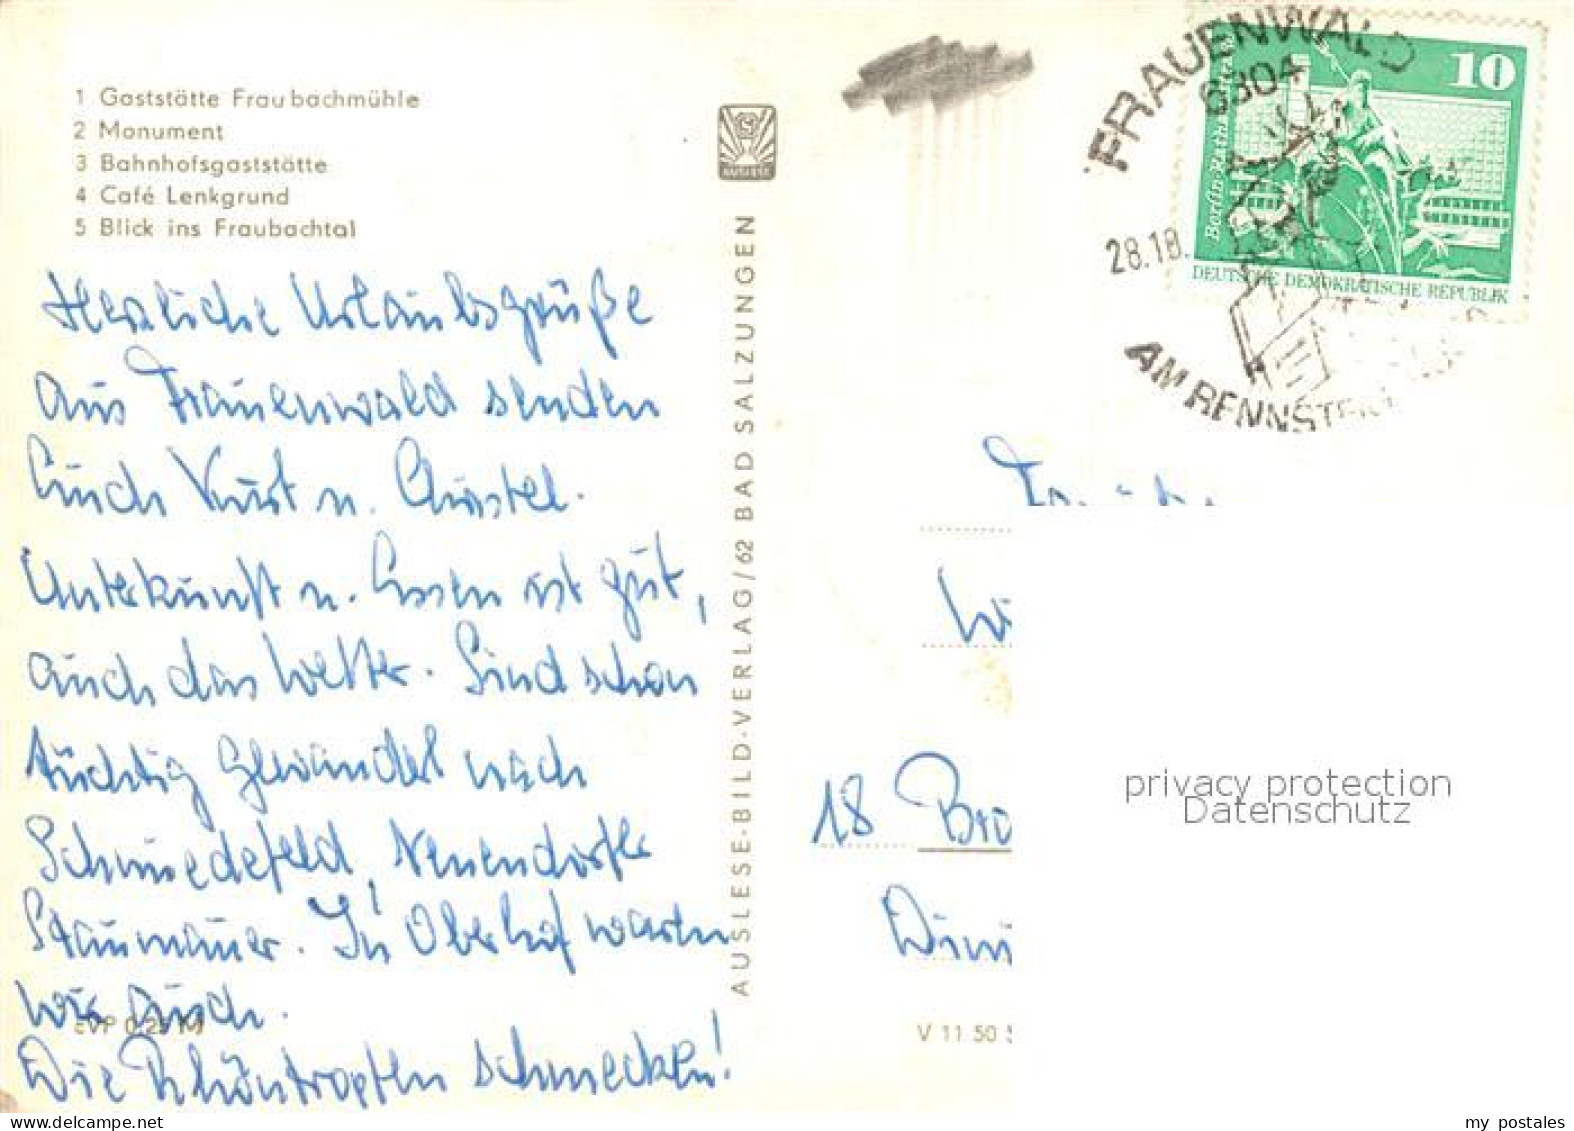 1 Gaststätte Fraubachmühle
2 Monument
3 Bahnhofsgaststätte
4 Café Lenkgrund
5 Blick ins Fraubachtal
AUSLESE
Herzliche Urlaubsgrüße
aus Frauenwald senden
Euch Kurt u. Christel.
Unterkunft u. Essen ist gut,
auch das Wetter. Sind schon
tüchtig gewandert nach
Schmiedefeld, Neuendorfer
Staumauer. In Oberhof warten
wir auch.
Die Rhöntropfen schmecken!
EVP 0,25 M
AUSLESE-BILD-VERLAG/62 BAD SALZUNGEN
FRAUENWALD
6304
28.10.
AM RENNSTEIG
10
Berlin-Rathaus
DEUTSCHE DEMOKRATISCHE REPUBLIK
18 Bro
V 11 50
privacy protection
Datenschutz
my postales